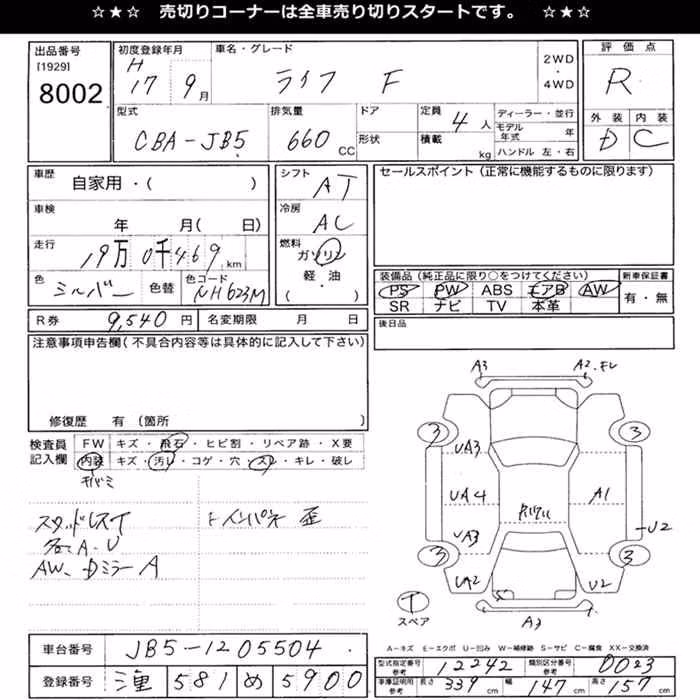 ☆★☆ 売切りコーナーは全車売り切りスタートです。 ☆★☆
出品番号
[1929]
8002
初度登録年月
H
17 9月
車名・グレード
ライフ F
2WD
・
4WD
評価点
R
外装 内装
D C
型式
CBA-JB5
排気量
660 CC
ドア
形状
定員
4人
積載
kg
ディーラー・並行
モデル年式 年
ハンドル 左・右
車歴
自家用・( )
シフト
AT
セールスポイント(正常に機能するものに限ります)
車検
年 月( 日)
冷房
AC
走行
19万0千469km
燃料
ガソリン
軽・油
( )
色
シルバー
色替
色コード
NH623M
装備品(純正品に限り○をつけてください)
PS PW ABS エアB AW
SR ナビ TV 本革
新車保証書
有・無
R券 9,540円 名変期限 月 日
後日品
注意事項申告欄(不具合内容等は具体的に記入して下さい)
修復歴 有(箇所 )
検査員
記入欄
FW キズ・飛石・ヒビ割・リペア跡・X要
内装 キズ・汚レ・コゲ・穴・スレ・キレ・破レ
スタッドレスT
各A.U
AW、DミラーA
インパネ 歪
A3
A2.
3
3
UA3
UA4
UA3
A1
U2
3
3
UA2
U2
A3
T
スペア
A-キズ E-エクボ U-凹み W-補修跡 S-サビ C-腐食 XX-交換済
車台番号 JB5-1205504
型式指定番号 参考 12242 類別区分番号 参考 0023
登録番号 581 め 5900
車庫証明用 参考 長さ 339 cm 幅 147 cm 高さ 157 cm